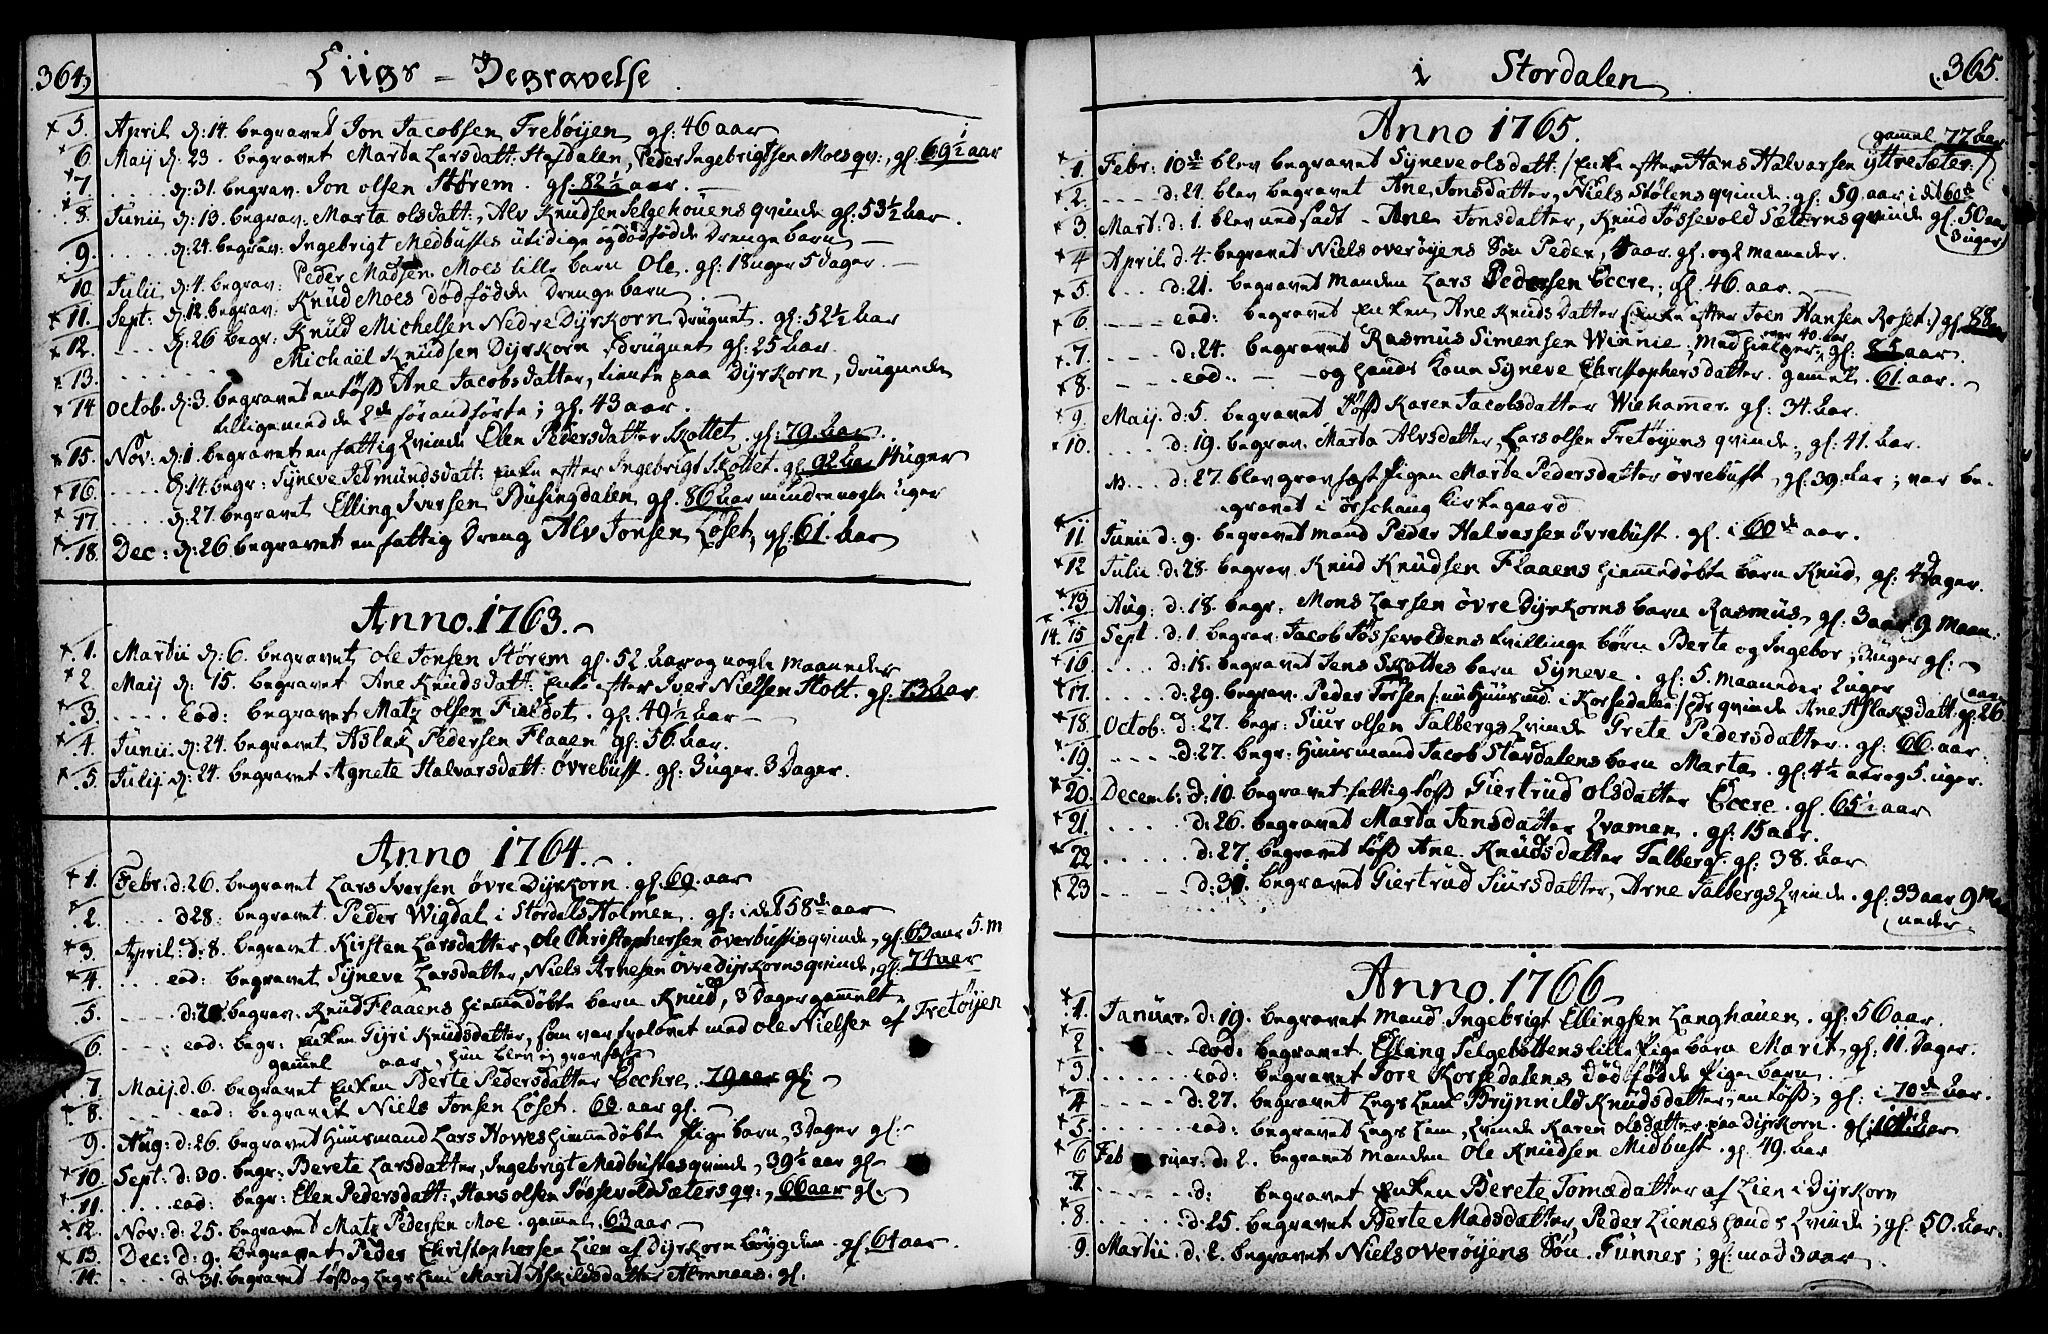 364.
Liigs - Begravelse.
5. April d: 14. begravet Jon Jacobsen Fretøyen gl: 46 aar
6. Maij d: 23. begravet Marta Larsdatt: Hofdalen, Peder Ingebrigtsen Moes qv:, gl: 69½ aar
7 ... d: 31. begrav. Jon olsen Størem. gl: 82½ aar.
8. Junii d: 13. begrav: Marta olsdatt:, Alv Knudsen Selgehouens qvinde gl: 53½ aar.
9. .... d: 24. begrav: Ingebrigt Medbustes utidige og dødfødde Drenge barn
10. Julii d: 4. begrav: Peder Madsen Moes lille barn Ole. gl: 18 uger 5 Dager.
11. Sept: d: 12. begrav: Knud Moes dødfødde Drenge barn
12. ... d: 26 begr: Knud Michelsen Nedre Dyrkorn drugnet. gl: 52½ aar
13. ..... Michaël Knudsen Dyrkorn drugnet gl: 25 aar.
14. octob. d: 3. begravet en Ane Jacobsdatter, tiente paa Dyrkorn, drugnede
tilligemed de 2de før anførte; gl. 43 aar.
15. Nov: d: 1. begravet en fattig qvinde Elen Pedersdatter Skottet. gl: 79 aar.
16. .... d: 14. begr: Syneve Setmundsdatt: Enke efter Ingebrigt Skottet. gl 92 aar 14 uger
17 .... d: 27. begravet Elling Iversen Busingdalen gl: 86 aar mindre nogle uger
18. Dec: d: 26 begravet en fattig Dreng Alv Jonsen Løset, gl: 61. aar
Anno. 1763.
1. Martii d: 6. begravet Ole Jonsen Størem gl: 52 aar og nogle maaneder
2 Maij d: 15. begravet Ane Knudsdatt: Enke efter Iver Nielsen Stolt. gl: 73 aar.
3. .... Eod: begravet Matz olsen Fieldet. gl: 49½ aar
4. Junii d: 24. begravet Aslak Pedersen Flaaen gl: 56. aar.
5. Julij d: 24. begravet Agnete Halvarsdatt: øvrebust. gl: 3 uger. 3 Dager.
Anno 1764.
1. Febr: d: 26. begravet Lars Iversen øvre Dyrkorn. gl: 69 aar
2. .... d 28: begravet Peder Wigdal i Stordals Holmen. gl: i det 58de aar
3. April: d: 8. begravet Kirsten Larsdatter, Ole Christophersen øverbustis qvinde, gl: 63 aar 5. m
4. ... eod: begravet Syneve Larsdatter, Niels Arnesen øvre dyrkorns qvinde, gl: 74 aar
5. begrav. Knud Flaaens hiemmedøbte barn Knud, 3 Dager gammelt
6 eod: begr: Enken Gyri Knudsdatter, som var forlovet med Ole Nielsen af Fretøyen
gammel aar, hun blev ej grav
7 Maij d. 6. begravet Enken Berte Pedersdatter Ecchre. 79 aar gl:
8. eod: begravet Niels Jonsen Løset. 60. aar gl.
9. Aug: d: 26. begravet Huusmand Lars Hoves hiemmedøbte Pige barn, 3 Dager gl:
10 Sept: d: 30. begr: Berete Larsdatter, Ingebrigt Medbustes qvinde, 39½ aar gl
11. .... eod: begr: Elen Pedersdatt:, Hans olsen Jøssevold Sæters qv:, 66 aar gl:
12. Nov: d: 25. begravet Matz Pedersen Moe. gammel 63 aar
13. Dec: d: 9. begravet Peder Christophersen Lien af Dyrkorn bøygden. gl. 64 aar.
14. .... d 31. begravet og Legslem Marit Askildsdatter Almenaas. gl:
i Stordalen
365.
Anno 1765.
gammel 77 aar
1. Febr: 10de blev begravet Syneve olsdatt: /Enke efter Hans Halvarsen yttre Sæter./
2. ... d. 24. blev begravet Ane Jonsdatter, Niels Stølens qvinde, gl: 59. aar i det 60de
3. Mart: d: 1. blev nedsadt - Ane Jonsdatter, Knud Jøssevold Sæterns qvinde gl. 50 aar
3 uger
4 April d. 4. begravet Niels overøyens Søn Peder, aar. gl: og 2 maaneder.
5. ... d: 21. begravet manden Lars Pedersen Eccre; gl 46. aar.
6. ---- eod: begravet Enken Ane Knudsdatter (: Enke efter Joen Hansen Roset:) gl. 88 aar
7. ---- d: 24. begravet Rasmus Simensen Winnie; Medhielper over 40. aar, gl: 85 aar.
8. ---- eod: - - og hands kone Syneve Christophersdatter. gammel. 61. aar.
9. Maij. d: 5. begravet Karen Jacobsdatter Wiehammer. gl: 34. aar.
10. d: 19. begrav. Marta Alvsdatter, Lars olsen Fretøyens qvinde; gl: 41. aar.
... d: 27. blev gravfæst Pigen Marte Pedersdatter øvrebust, gl: 39. aar; var be-
gravet i ørschoug Kirkegaard
11 Junii d. 9. begravet mand Peder Halvarsen øvrebust. gl. i 60de aar.
12 Julii. d: 28. begrav. Knud Knudsen Flaaens hiemmedøbte barn Knud, gl: 4 Dager.
13 Aug: d: 18. begr. Mons Larsen øvre Dyrkorns barn Rasmus, gl: 3 aar 9. maan:
14. 15 Sept. d: 1. begrav. Jacob Jøssevoldens tvillinge børn Berte og Ingebor, 3 uger gl:
16 .... d: 15. begravet Jens Skottes barn Syneve. gl: 5. maaneder 2 uger
17. d: 29. begrav. Peder Torsen /: nu Huusmd. i Korsedalen/ ds qvinde Ane Aslaksdatt: gl: 26 aar
18. Octob: d: 27. begr: Siur olsen Talbergs qvinde Grete Pedersdatter. gl: 66. aar.
19. ... d: 27. begr. Huusmand Jacob Stavdalens barn Marta. gl: 4½ aar og 5. uger.
20. Decemb: d: 10. begravet fattig Giertrud Olsdatter Eccre. gl. 65½ aar
21. .... d: 26. begravet Marta Jensdatter Kvamen. gl: 15 aar.
22 ..... d: 27. begravet Ane. Knudsdatter Talberg. gl: 38. aar
23 begravet Giertrud Siursdatter, Arne Talbergs qvinde. gl: 33 aar 9 Maa
neder
Anno. 1766
1. Januar. d: 19. begravet mand Ingebrigt Ellingsen Langhauen. gl: 56 aar.
2 eod: begravet Elling Selgebottens lille Pige barn Marit, gl: 11. Dager.
3. ..... eod: begravet Tore Korsedalens Død fødde Pige barn.
4 ..... d: 27. begravet Legs Lem Brynnild Knudsdatter, en gl: i 70de aar.
5 ..... eod: begravet Legs Lem, qvinde Karen olsdatter paa dyrkorn. gl: aar
6 Februar: d: 2. begravet manden Ole Knudsen Midbust. gl. 49. aar
7. ..... d: begravet Enken Berete Tomasdatter af Lien i Dyrkorn
8. ..... d: 25. begravet Berte Madsdatter, Peder Lienæs hands qvinde; gl: 50. aar.
9. Martii d: 2. begravet Niels overøyens Søn Funner; gl: mod 3 aar